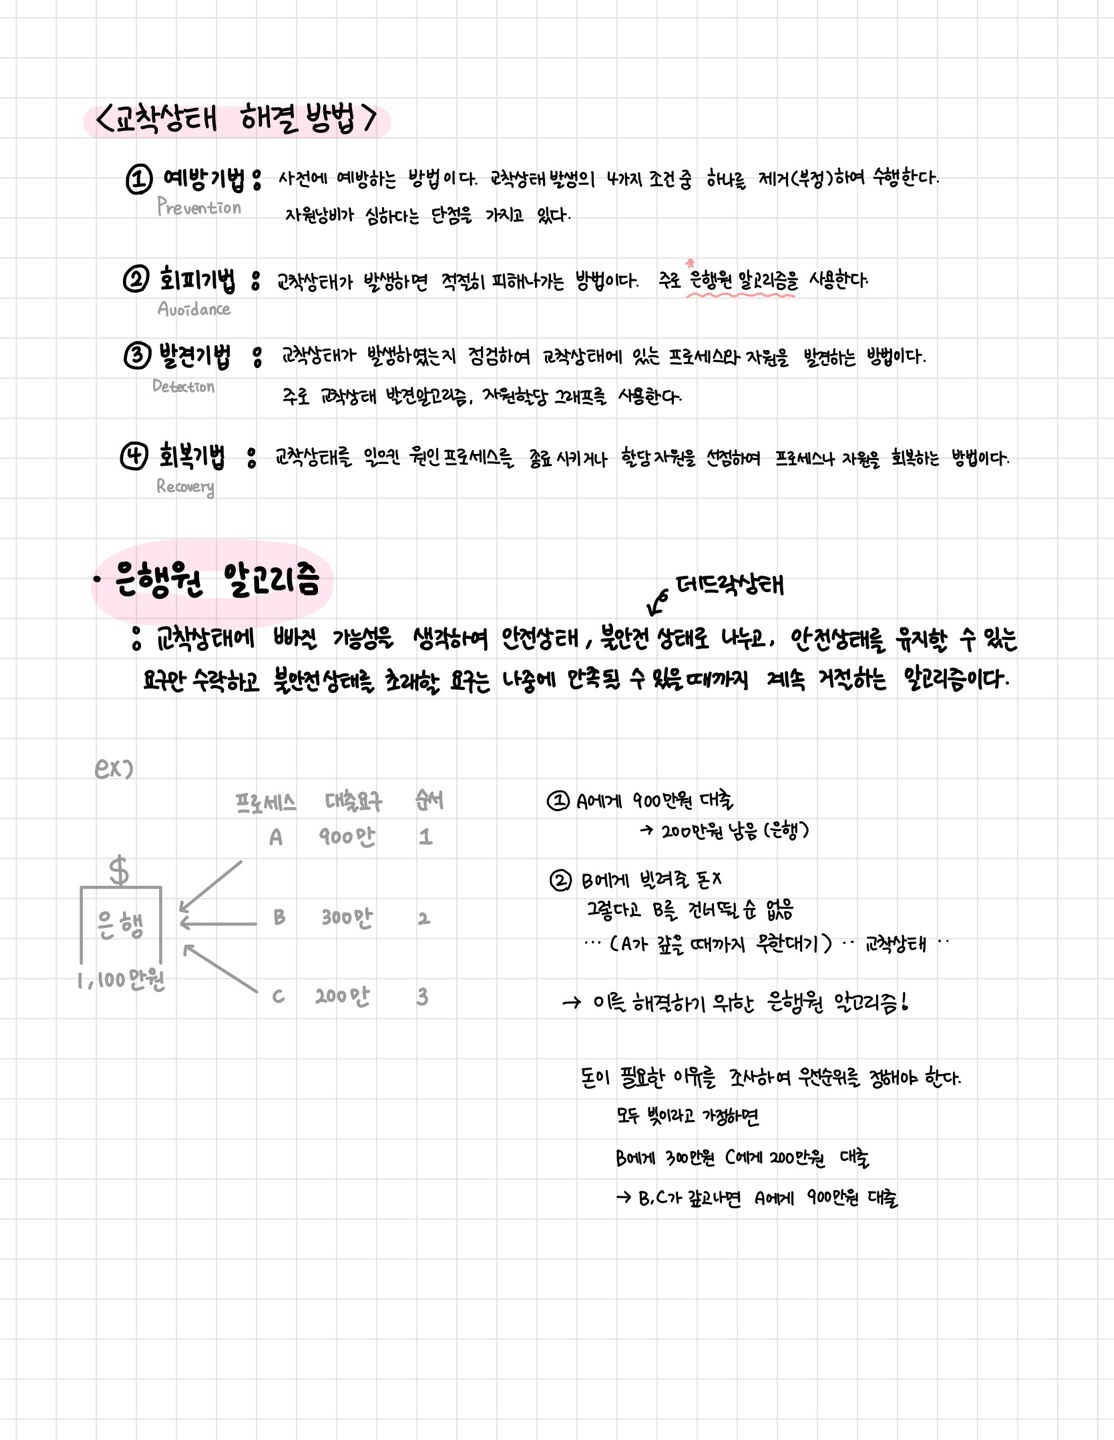 <교착상태 해결 방법>
① 예방기법 : 사전에 예방하는 방법이다. 교착상태 발생의 4가지 조건 중 하나를 제거(부정)하여 수행한다.
Prevention
자원낭비가 심하다는 단점을 가지고 있다.
② 회피기법 : 교착상태가 발생하면 적절히 피해나가는 방법이다. 주로 *은행원 알고리즘을 사용한다.
Avoidance
③ 발견기법 : 교착상태가 발생하였는지 점검하여 교착상태에 있는 프로세스와 자원을 발견하는 방법이다.
Detection
주로 교착상태 발견알고리즘, 자원할당 그래프를 사용한다.
④ 회복기법 : 교착상태를 일으킨 원인 프로세스를 종료 시키거나 할당 자원을 선점하여 프로세스나 자원을 회복하는 방법이다.
Recovery
· 은행원 알고리즘
데드락상태
: 교착상태에 빠질 가능성을 생각하여 안전상태, 불안전 상태로 나누고, 안전상태를 유지할 수 있는
요구만 수락하고 불안전상태를 초래할 요구는 나중에 만족될 수 있을때까지 계속 거절하는 알고리즘이다.
ex)
프로세스 대출요구 순서
A 900만 1
$
은행
1,100만원
B 300만 2
C 200만 3
① A에게 900만원 대출
→ 200만원 남음 (은행)
② B에게 빌려줄 돈X
그렇다고 B를 건너뛸 순 없음
… (A가 갚을 때까지 무한대기) ‥ 교착상태 ‥
→ 이를 해결하기 위한 은행원 알고리즘!
돈이 필요한 이유를 조사하여 우선순위를 정해야 한다.
모두 빚이라고 가정하면
B에게 300만원 C에게 200만원 대출
→ B,C가 갚고나면 A에게 900만원 대출